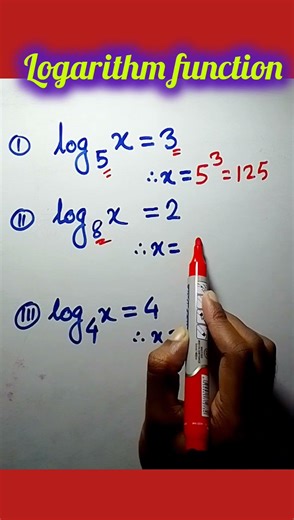 Logarithm function
I log₅x = 3
∴x = 5³ = 125
II log₈x = 2
∴x =
III log₄x = 4
∴x =